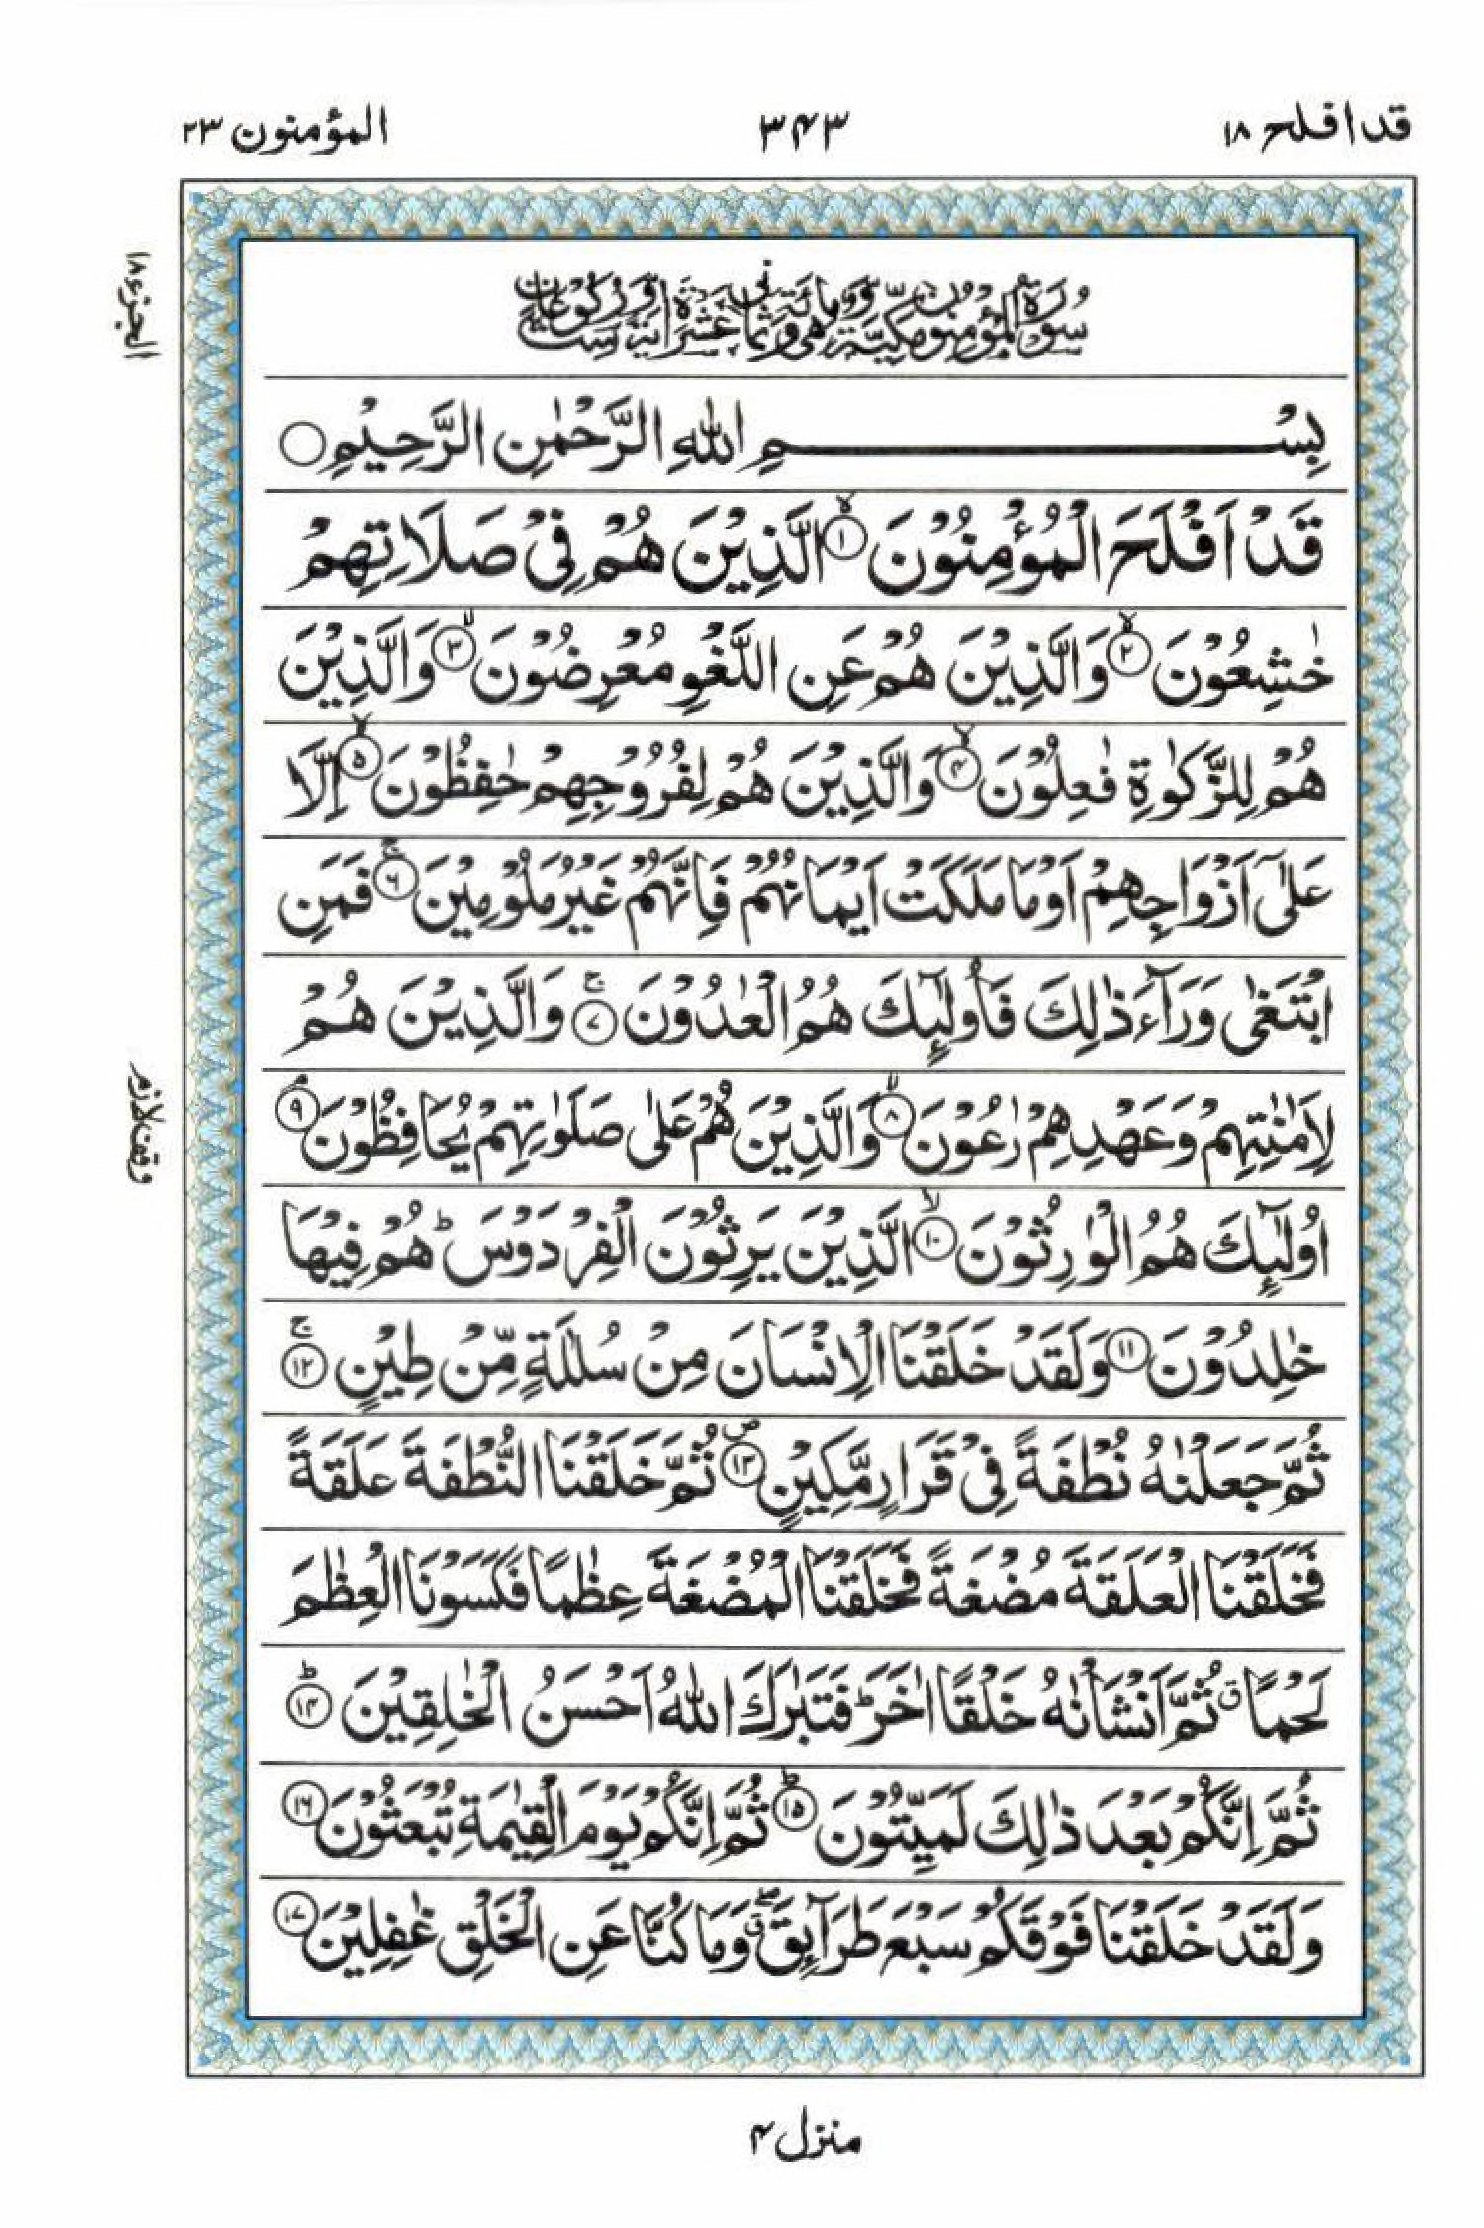 قد افلح ۱۸
۳۴۳
المؤمنون ۲۳
الجزء ۱۸
سُوْرَةُ الْمُؤْمِنُوْنَ مَكِّيَّةٌ وَّهِيَ مِائَةٌ وَّثَمَانِيَ عَشَرَةَ اٰيَةً وَّسِتُّ رُكُوْعَاتٍ
بِسْمِ اللّٰهِ الرَّحْمٰنِ الرَّحِيْمِ ○
قَدْ اَفْلَحَ الْمُؤْمِنُوْنَ ۙ﴿۱﴾ الَّذِيْنَ هُمْ فِيْ صَلَاتِهِمْ
خٰشِعُوْنَ ۙ﴿۲﴾ وَالَّذِيْنَ هُمْ عَنِ اللَّغْوِ مُعْرِضُوْنَ ۙ﴿۳﴾ وَالَّذِيْنَ
هُمْ لِلزَّكٰوةِ فٰعِلُوْنَ ۙ﴿۴﴾ وَالَّذِيْنَ هُمْ لِفُرُوْجِهِمْ حٰفِظُوْنَ ۙ﴿۵﴾ اِلَّا
عَلٰٓى اَزْوَاجِهِمْ اَوْ مَا مَلَكَتْ اَيْمَانُهُمْ فَاِنَّهُمْ غَيْرُ مَلُوْمِيْنَ ۚ﴿۶﴾ فَمَنِ
ابْتَغٰى وَرَآءَ ذٰلِكَ فَاُولٰٓئِكَ هُمُ الْعٰدُوْنَ ۚ﴿۷﴾ وَالَّذِيْنَ هُمْ
لِاَمٰنٰتِهِمْ وَعَهْدِهِمْ رٰعُوْنَ ۙ﴿۸﴾ وَالَّذِيْنَ هُمْ عَلٰى صَلَوٰتِهِمْ يُحَافِظُوْنَ ۘ﴿۹﴾
وقف لازم
اُولٰٓئِكَ هُمُ الْوٰرِثُوْنَ ۙ﴿۱۰﴾ الَّذِيْنَ يَرِثُوْنَ الْفِرْدَوْسَ ؕ هُمْ فِيْهَا
خٰلِدُوْنَ ﴿۱۱﴾ وَلَقَدْ خَلَقْنَا الْاِنْسَانَ مِنْ سُلٰلَةٍ مِّنْ طِيْنٍ ۚ﴿۱۲﴾
ثُمَّ جَعَلْنٰهُ نُطْفَةً فِيْ قَرَارٍ مَّكِيْنٍ ۪﴿۱۳﴾ ثُمَّ خَلَقْنَا النُّطْفَةَ عَلَقَةً
فَخَلَقْنَا الْعَلَقَةَ مُضْغَةً فَخَلَقْنَا الْمُضْغَةَ عِظٰمًا فَكَسَوْنَا الْعِظٰمَ
لَحْمًا ۗ ثُمَّ اَنْشَاْنٰهُ خَلْقًا اٰخَرَ ؕ فَتَبٰرَكَ اللّٰهُ اَحْسَنُ الْخٰلِقِيْنَ ؕ﴿۱۴﴾
ثُمَّ اِنَّكُمْ بَعْدَ ذٰلِكَ لَمَيِّتُوْنَ ؕ﴿۱۵﴾ ثُمَّ اِنَّكُمْ يَوْمَ الْقِيٰمَةِ تُبْعَثُوْنَ ﴿۱۶﴾
وَلَقَدْ خَلَقْنَا فَوْقَكُمْ سَبْعَ طَرَآئِقَ ۖۗ وَمَا كُنَّا عَنِ الْخَلْقِ غٰفِلِيْنَ ﴿۱۷﴾
منزل ۴